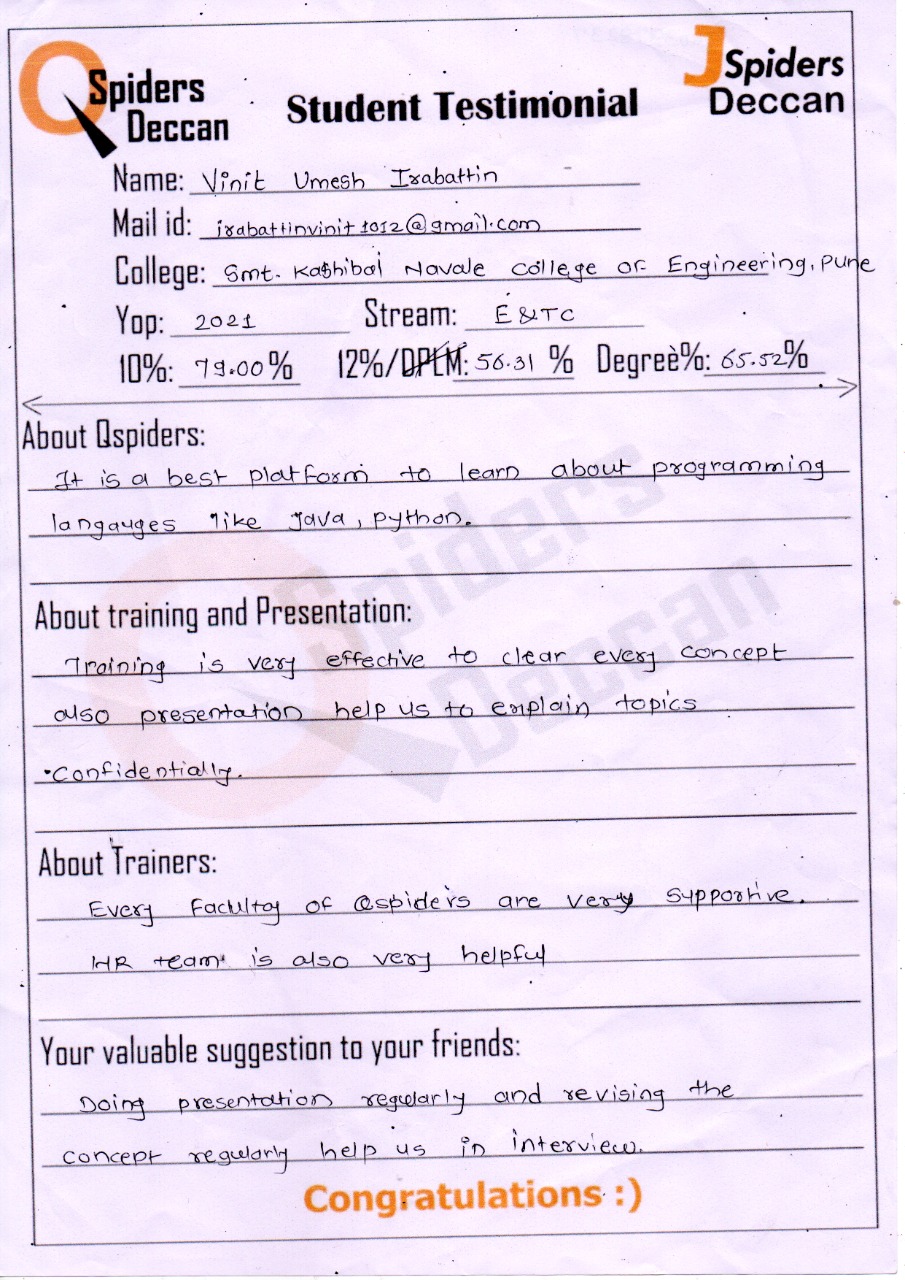 QSpiders
Deccan
Student Testimonial
JSpiders
Deccan
Name: Vinit Umesh Irabattin
Mail id: irabattinvinit1012@gmail.com
College: Smt. Kashibai Navale College of Engineering, Pune
Yop: 2021 Stream: E&TC
10%: 79.00% 12%/DPLM: 56.31 % Degree%: 65.52%
About Qspiders:
It is a best platform to learn about programming
langauges like Java, python.
About training and Presentation:
Training is very effective to clear every concept
also presentation help us to explain topics
confidentially.
About Trainers:
Every Facultay of Qspiders are very supportive.
HR team is also very helpful
Your valuable suggestion to your friends:
Doing presentation regularly and revising the
concept regularly help us in interview.
Congratulations :)
QSpiders
Deccan